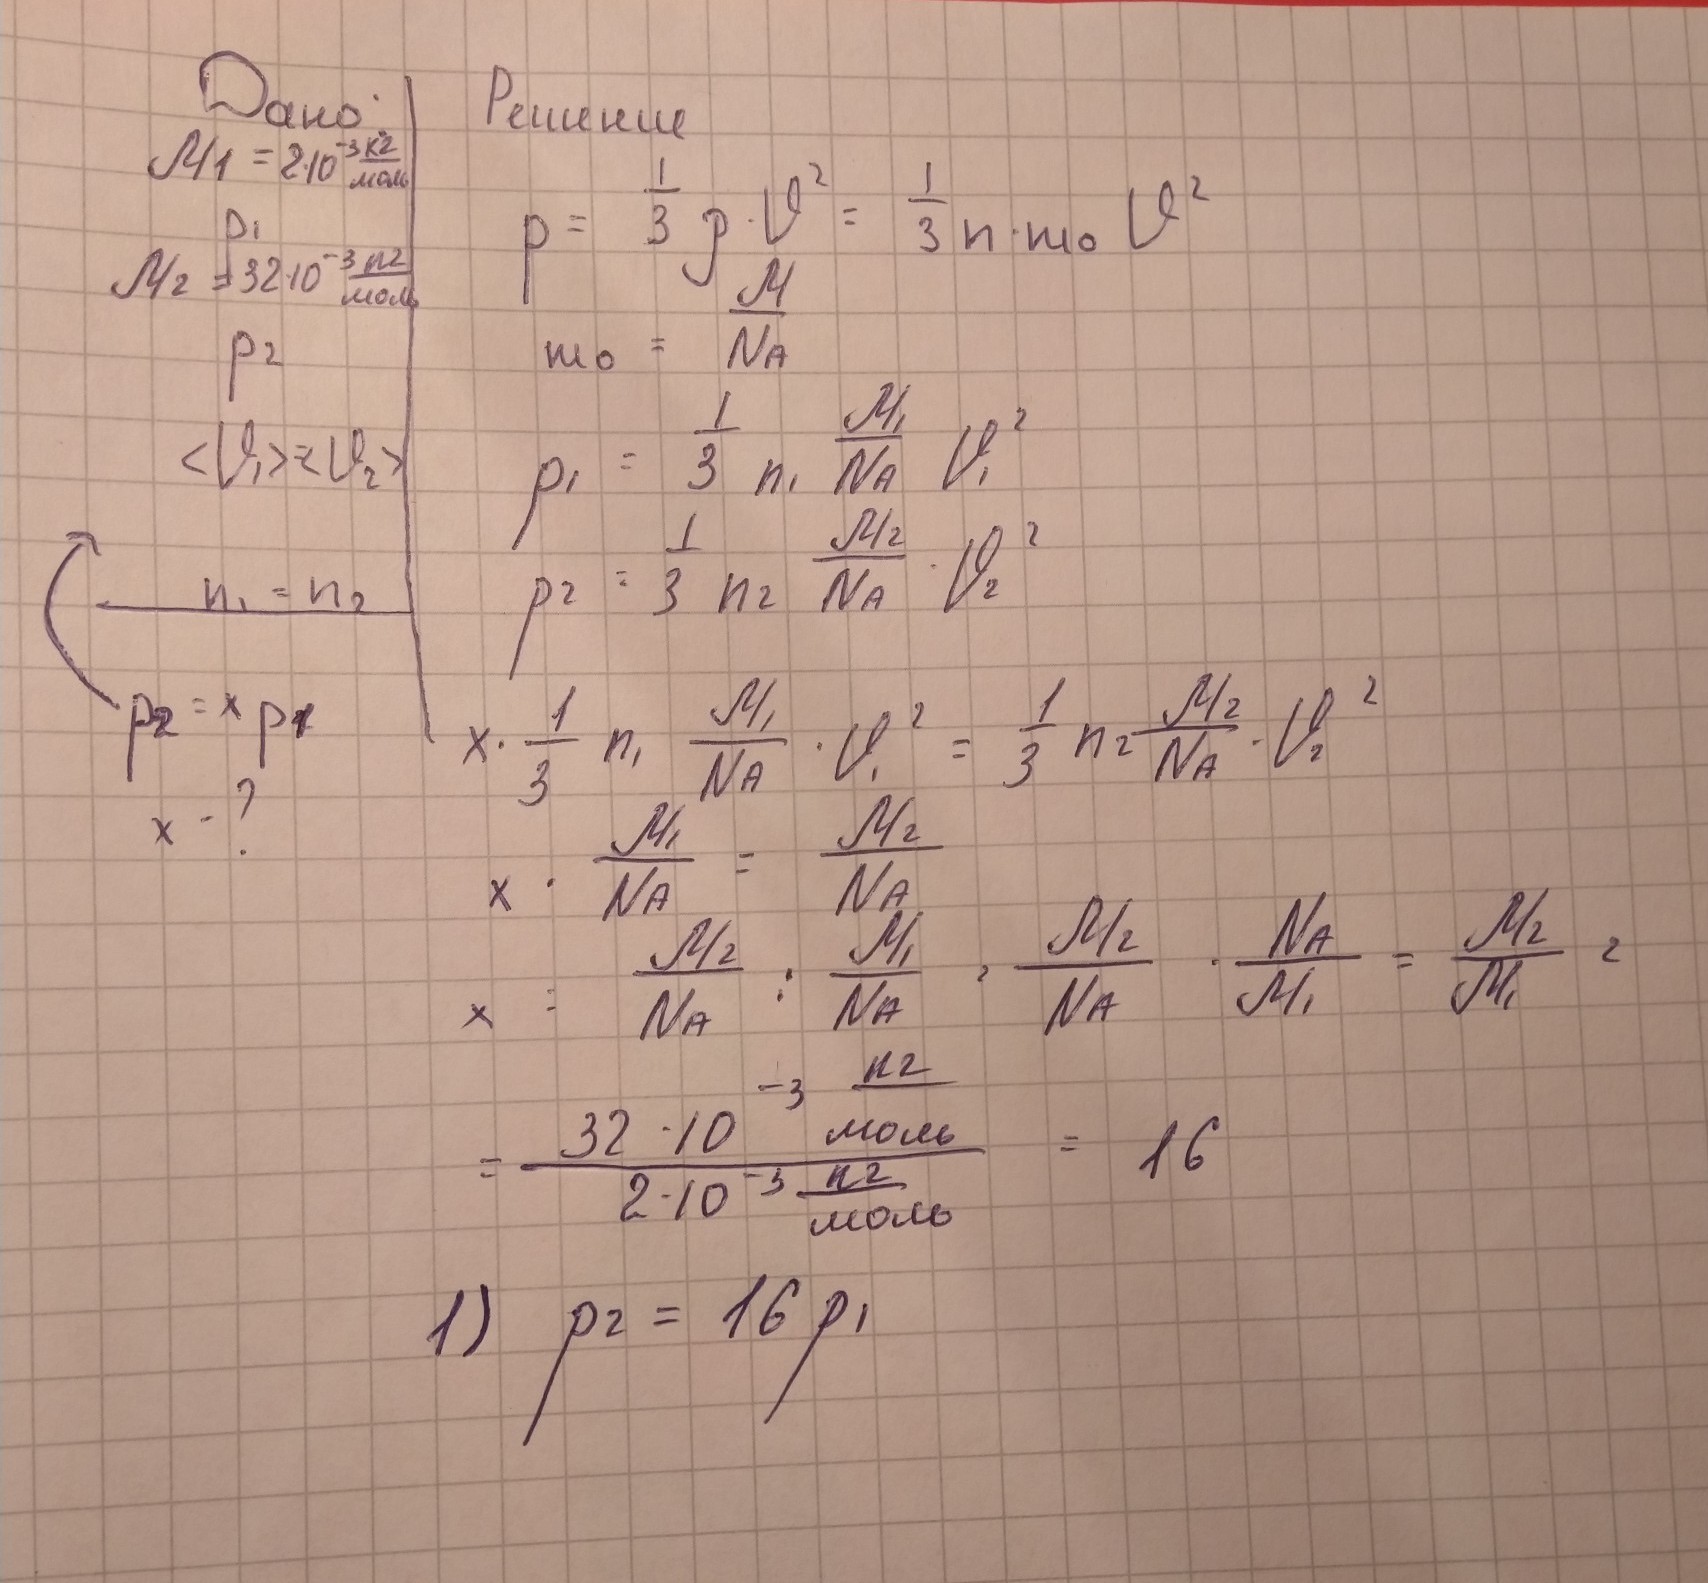 Дано:
M1 = 2·10⁻³ кг/моль
p₁
M2 = 32·10⁻³ кг/моль
p2
<υ₁>=<υ₂>
n₁ = n₂
p2 = x p1
x - ?
Решение
p = 1/3 ρ·υ² = 1/3 n·m₀ υ²
m₀ = M/NA
p₁ = 1/3 n₁ M₁/NA υ₁²
p2 = 1/3 n2 M2/NA · υ₂²
x · 1/3 n₁ M₁/NA · υ₁² = 1/3 n2 M2/NA · υ₂²
x · M₁/NA = M2/NA
x = M2/NA : M₁/NA = M2/NA · NA/M₁ = M2/M₁ =
= 32·10⁻³ кг/моль / 2·10⁻³ кг/моль = 16
1) p2 = 16 p₁